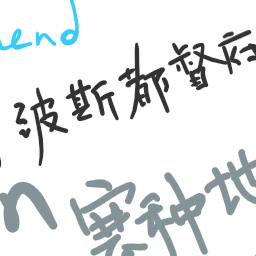 end
波斯都督府
n 寞种地